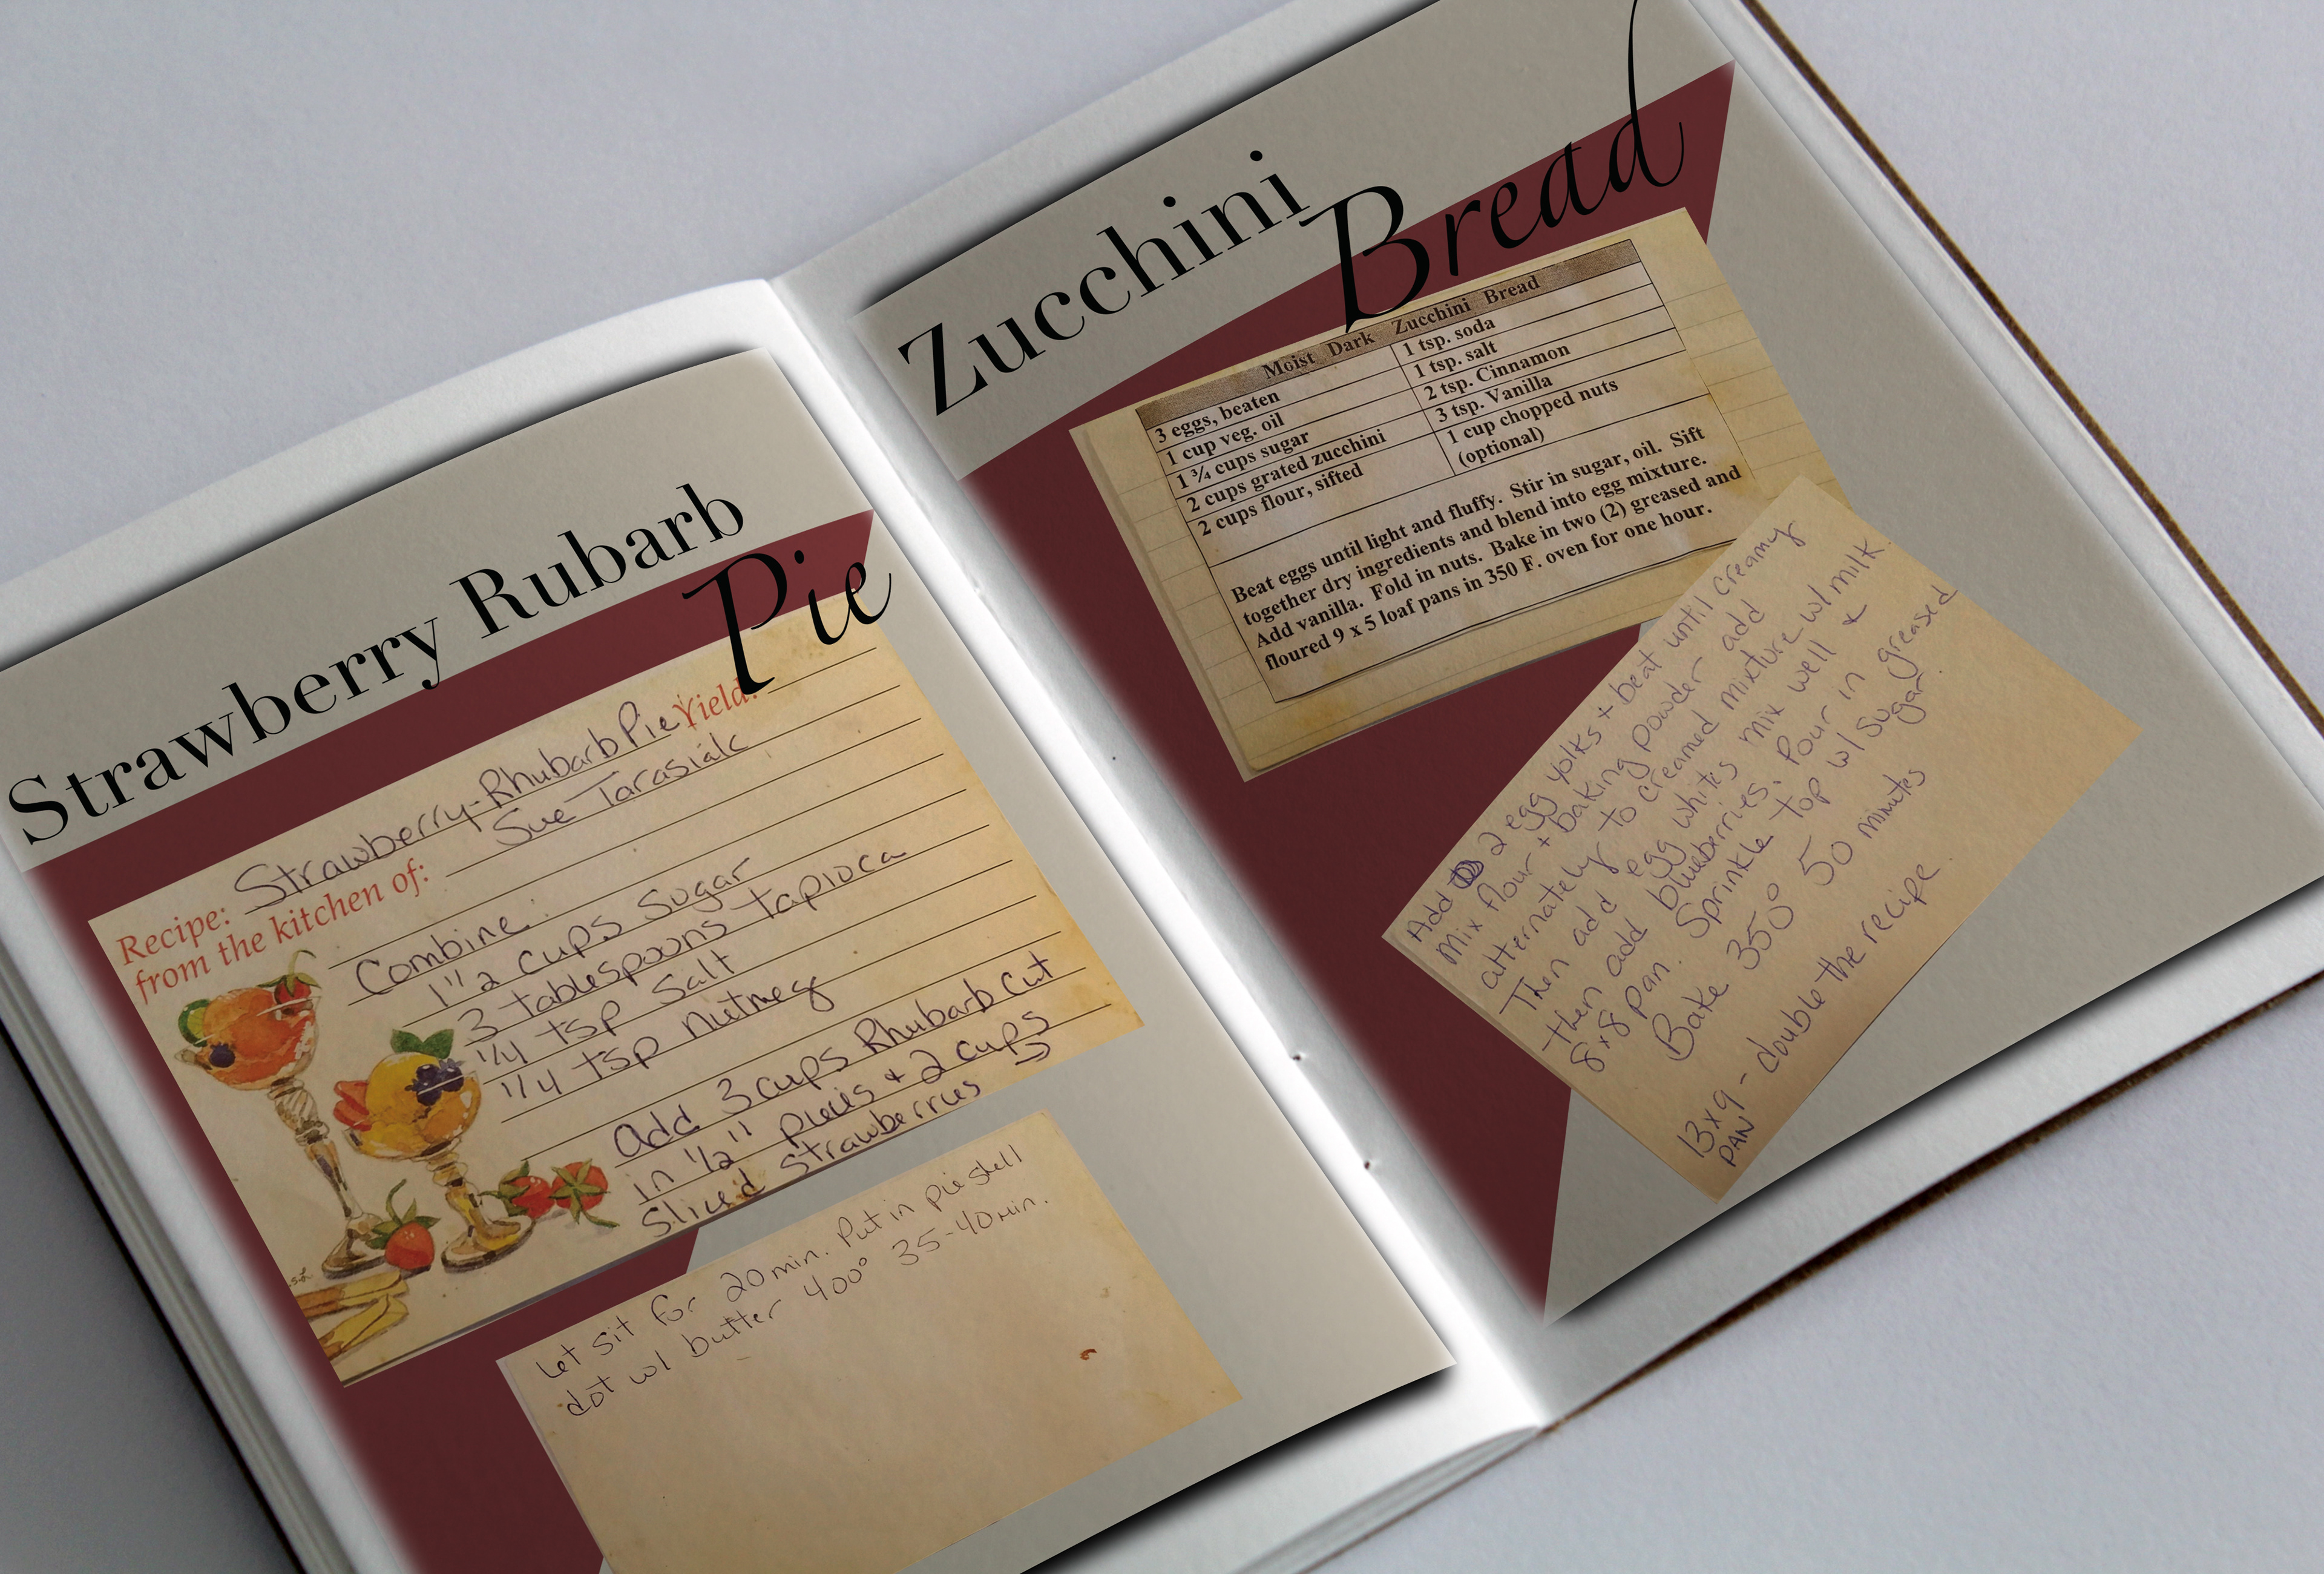 Strawberry Rubarb
Pie
Recipe: Strawberry-Rhubarb Pie Yield:
from the kitchen of: Sue Tarasialc
Combine:
1 1/2 cups Sugar
3 tablespoons tapioca
1/4 tsp Salt
1/4 tsp nutmeg
add 3 cups Rhubarb cut
in 1/2" pieces + 2 cups
Sliced strawberries
Let sit for 20 min. Put in pie shell
dot w/ butter 400° 35-40 min.
Zucchini
Bread
Moist Dark Zucchini Bread
3 eggs, beaten 1 tsp. soda
1 cup veg. oil 1 tsp. salt
1 ¾ cups sugar 2 tsp. Cinnamon
2 cups grated zucchini 3 tsp. Vanilla
2 cups flour, sifted 1 cup chopped nuts
(optional)
Beat eggs until light and fluffy. Stir in sugar, oil. Sift
together dry ingredients and blend into egg mixture.
Add vanilla. Fold in nuts. Bake in two (2) greased and
floured 9 x 5 loaf pans in 350 F. oven for one hour.
Add 2 egg yolks + beat until creamy
Mix flour + baking powder add
alternately to creamed mixture w/ milk.
Then add egg whites mix well +
then add blueberries. Pour in greased
8x8 pan. Sprinkle top w/ sugar.
Bake 350° 50 minutes
13x9 - double the recipe
PAN